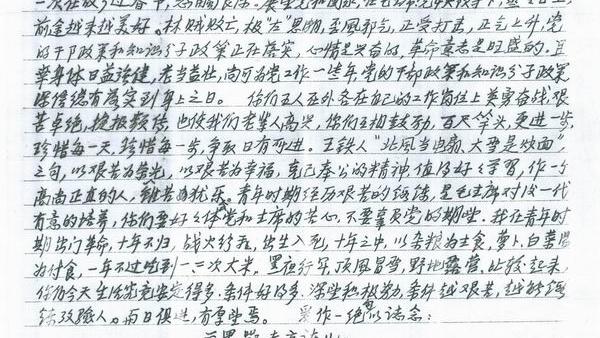 前途越来越美好。林贼败亡，极"左"思潮，歪风邪气，正受打击，正气上升，党
的干部政策和知识分子政策正在落实，心情是兴奋的，革命意志是旺盛的，且
幸身体日益强健，老当益壮，尚可为党工作一些年，党的干部政策和知识分子政策
深信总有落实到身上之日。 你们五人在外各在自己的工作岗位上英勇奋战，艰
苦卓绝，捷报频传，也使我们老辈人高兴，你们互相鼓励，百尺竿头，更进一步，
珍惜每一天，珍惜每一步，争取日有所进。王铁人"北风当电扇，大雪是炒面"
之句，以艰苦为荣，以艰苦为幸福，克己奉公的精神，值得好好学习，作一个
高尚正直的人，青年时期经历艰苦的锻炼，是毛主席对后一代
有意的培养，你们要好好体党和主席的苦心，不要辜负党的期望。我在青年时
期出门革命，十年不归，战火纷飞，出生入死，十年之中，以杂粮为主食，萝卜，白薯
为付食，一年不过吃到一二次大米，黑夜行军，顶风冒雪，野地露营，比较起来，
你们今天生活究竟安定得多，条件好得多，深望积极努力，条件越艰苦，越能锻
炼改验人，而日俱进，有厚望焉。 作一绝以志念：